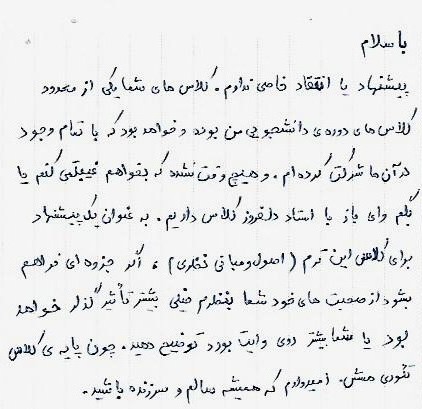 با سلام
پیشنهاد یا انتقاد خاصی ندارم. کلاس های شما یکی از معدود
کلاس های دوره ی دانشجویی من بوده و خواهد بود که با تمام وجود
در آن ها شرکت کرده ام. و هیچ وقت نشده که بخواهم غیبتی کنم یا
بگم وای باز با استاد دلفروز کلاس داریم. به عنوان یک پیشنهاد
برای کلاس این ترم (اصول و مبانی نظری)، اگر جزوه ای فراهم
بشود از صحبت های خود شما بنظرم خیلی بیشتر تأثیرگذار خواهد
بود یا شما بیشتر روی وایت بورد توضیح دهید. چون پایه ی کلاس
تئوری هستش. امیدوارم که همیشه سالم و سرزنده باشید.